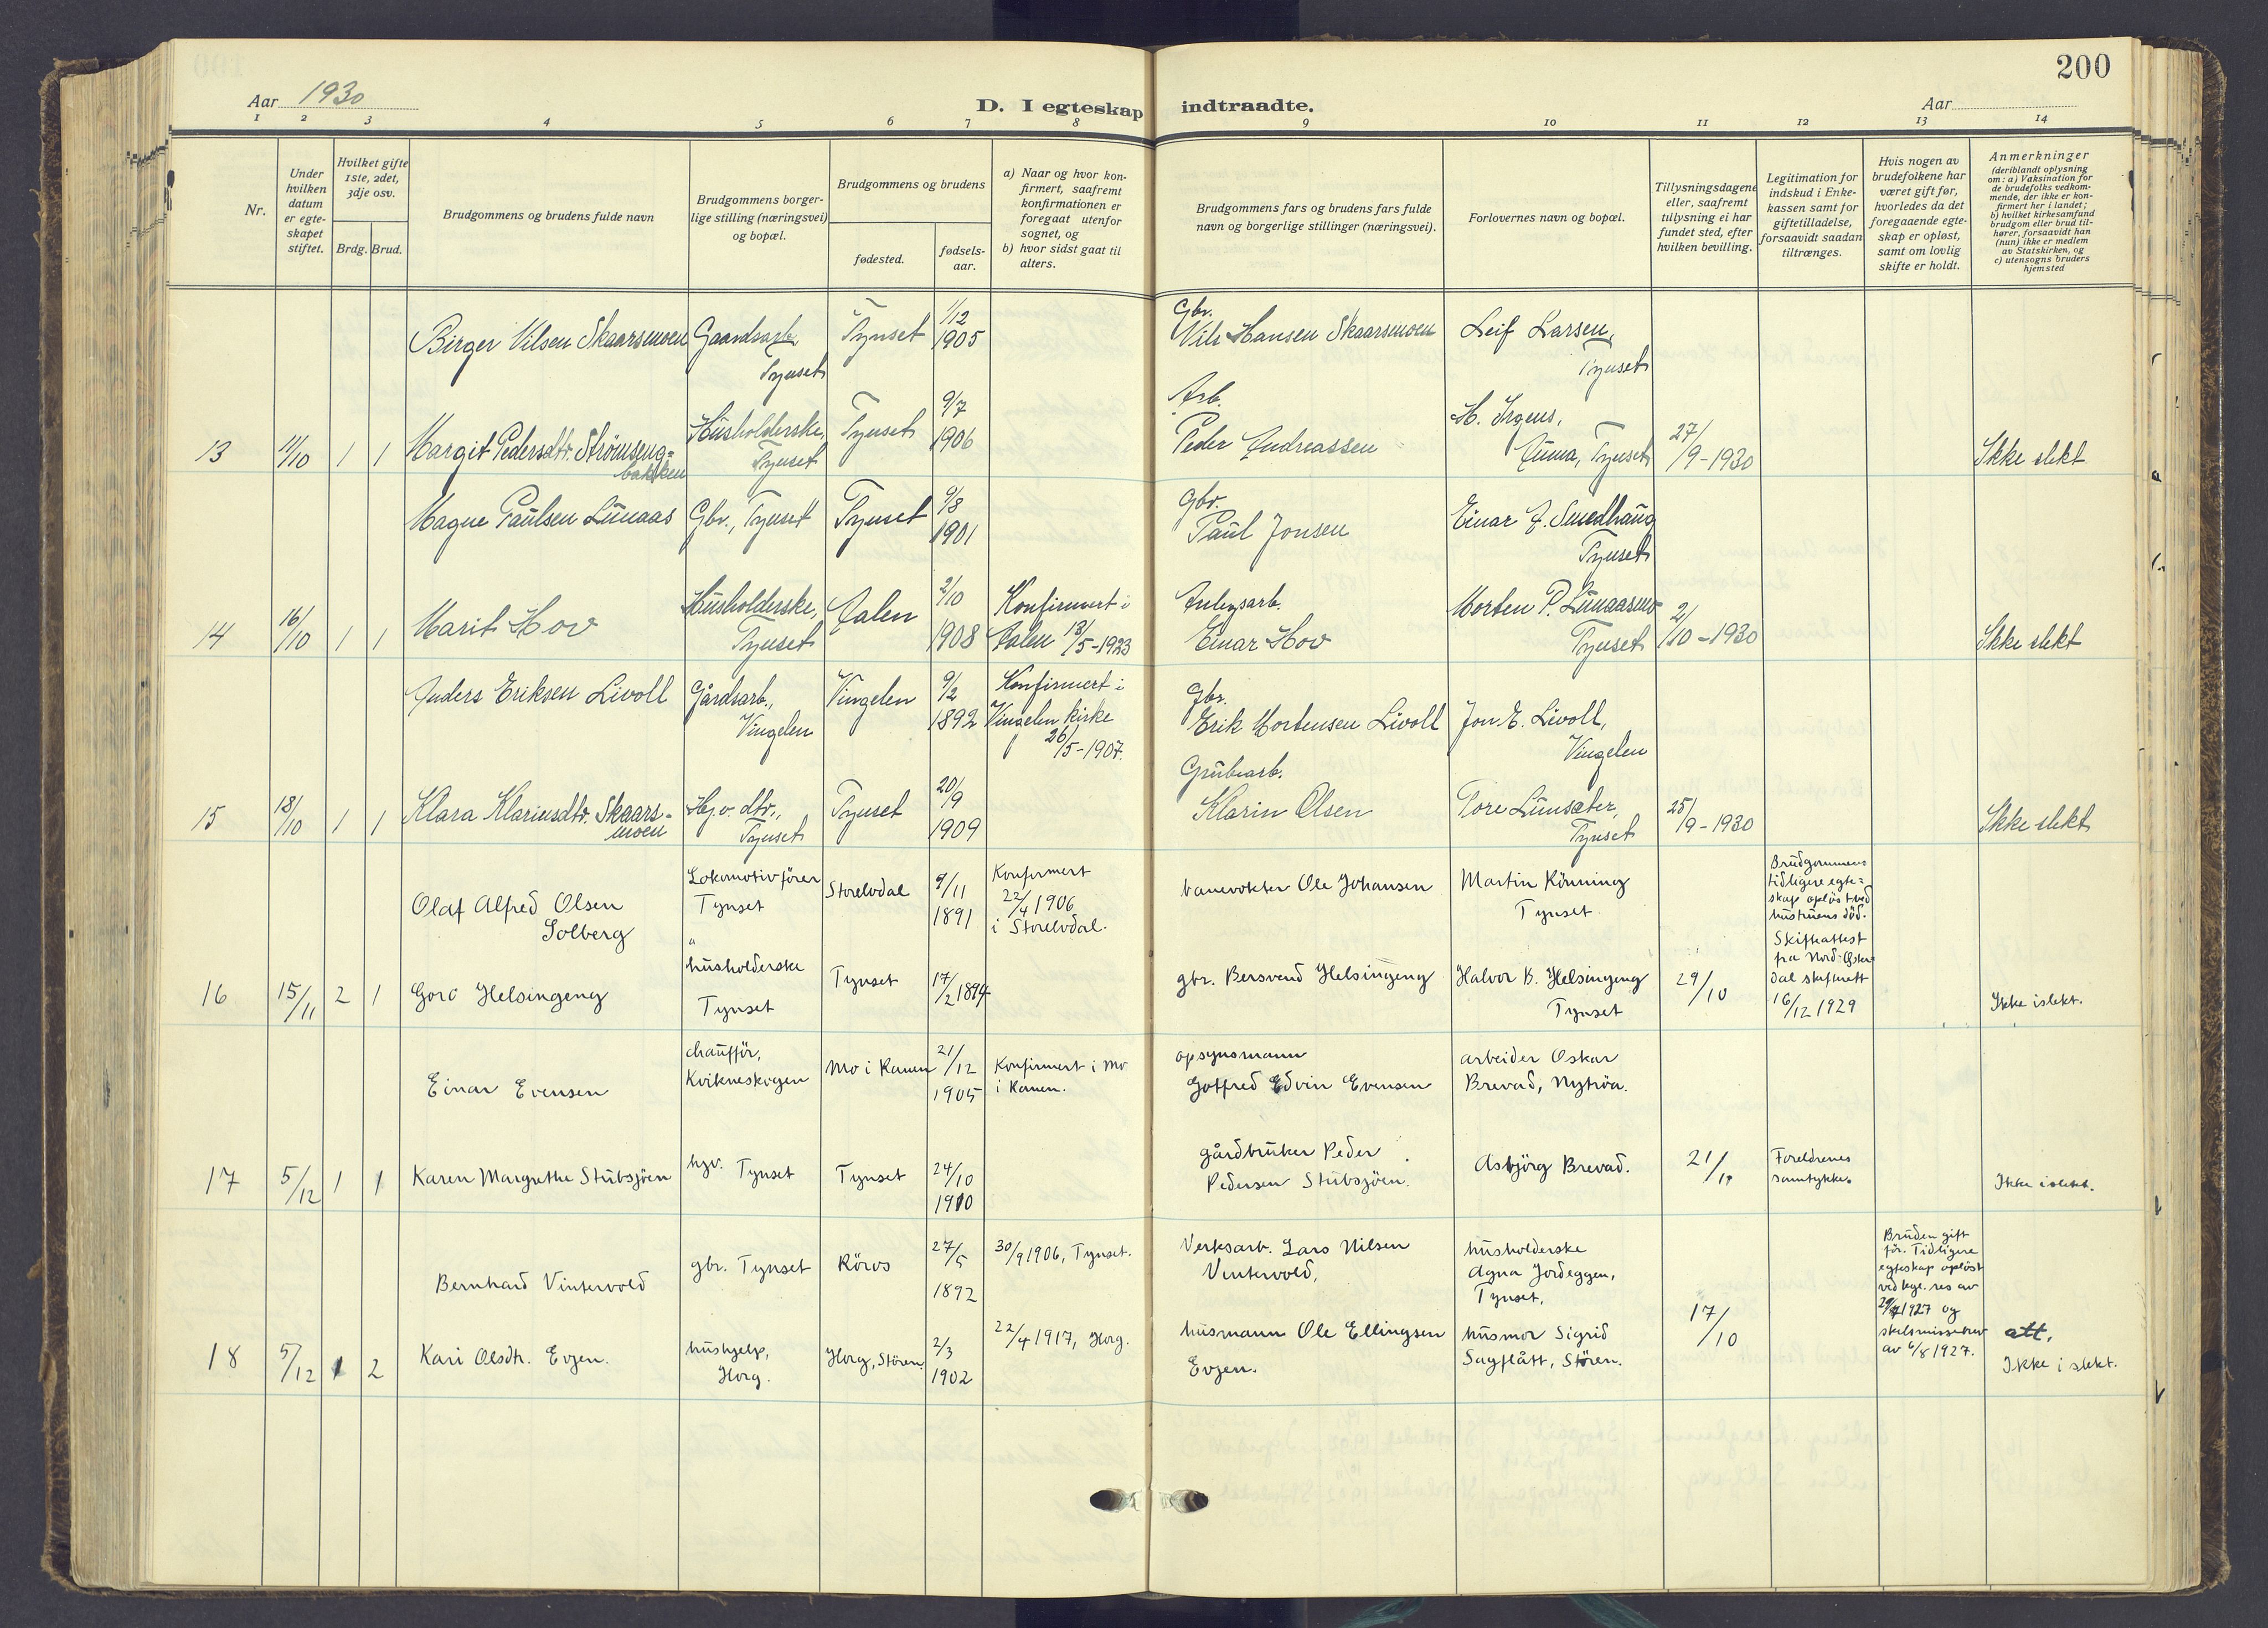 200
Aar 1930
D. I egteskap indtraadte.
Aar
1 2 3 4 5 6 7 8 9 10 11 12 13 14
Nr.
Under
hvilken
datum
er egte-
skapet
stiftet.
Hvilket gifte
1ste, 2det,
3dje osv.
Brdg. Brud.
Brudgommens og brudens fulde navn
Brudgommens borger-
lige stilling (næringsvei)
og bopæl.
Brudgommens og brudens
fødested.
fødsels-
aar.
a) Naar og hvor kon-
firmert, saafremt
konfirmationen er
foregaat utenfor
sognet, og
b) hvor sidst gaat til
alters.
Brudgommens fars og brudens fars fulde
navn og borgerlige stillinger (næringsvei).
Forlovernes navn og bopæl.
Tillysningsdagene
eller, saafremt
tillysning ei har
fundet sted, efter
hvilken bevilling.
Legitimation for
indskud i Enke-
kassen samt for
giftetilladelse,
forsaavidt saadan
tiltrænges.
Hvis nogen av
brudefolkene har
været gift før,
hvorledes da det
foregaaende egte-
skap er opløst,
samt om lovlig
skifte er holdt.
Anmerkninger
(deriblandt oplysning
om: a) Vaksination for
de brudefolks vedkom-
mende, der ikke er kon-
firmert her i landet;
b) hvilket kirkesamfund
brudgom eller brud til-
hører, forsaavidt han
(hun) ikke er medlem
av Statskirken, og
c) utensogns bruders
hjemsted
Birger Nilsen Skaarsmoen
Gaardsarb.
Tynset
Tynset
1/12
1905
Gbr.
Nils Hansen Skaarsmoen
Leif Larsen,
Tynset
13 11/10 1 1
Margit Pedersdtr. Strömseng-
bakken
Husholderske,
Tynset
Tynset
9/7
1906
Arb.
Peder Andreassen
H. Irgens,
Auma, Tynset
27/9-1930
Ikke slekt
Magne Paulsen Lunaas
Gbr., Tynset
Tynset
9/8
1901
Gbr.
Paul Jonsen
Einar J. Smedhaug
Tynset
14 16/10 1 1
Marit Hov
Husholderske,
Tynset
Aalen
2/10
1908
Konfirmert i
Aalen 13/5-1923
Anlegsarb.
Einar Hov
Morten P. Lunaasmo
Tynset
2/10-1930
Ikke slekt
Anders Eriksen Livoll
Gårdsarb.,
Vingelen
Vingelen
9/2
1892
Konfirmert i
Vingelen kirke
26/5-1907.
Gbr.
Erik Mortensen Livoll
Jon E. Livoll,
Vingelen
15 18/10 1 1
Klara Klarinsdtr. Skaars-
moen
Hj.v. dtr.,
Tynset
Tynset
20/9
1909
Grubearb.
Klarin Olsen
Tore Lunsæter,
Tynset
25/9-1930
Ikke slekt
Olaf Alfred Olsen
Solberg
Lokomotivförer
Tynset
Storelvdal
9/11
1891
Konfirmert
22/4 1906
i Storelvdal.
banevokter Ole Johansen
Martin Könning
Tynset
Brudgommens
tidligere egte=
skap opløst ved
hustruens död.
16 15/11 2 1
Goro Helsingeng
"
husholderske
Tynset
Tynset
17/2 1894
gbr. Bersvend Helsingeng
Halvor B. Helsingeng
Tynset
29/10
Skifteattest
fra Nord-Öster
dal skifterett
16/12 1929
Ikke i slekt.
Einar Evensen
chaufför,
Kvikneskogen
Mo i Ranen
21/12
1905
Konfirmert i Mo
i Ranen.
opsynsmann
Gotfred Edvin Evensen
arbeider Oskar
Brevad, Nytröa.
17 5/12 1 1
Karen Margrethe Stubsjöen
hjv. Tynset
Tynset
24/10
1910
gårdbruker Peder
Pedersen Stubsjöen.
Asbjörg Brevad.
21/11
Foreldrenes
samtykke.
Ikke i slekt.
Bernhard Vintervold
gbr. Tynset
Röros
27/5
1892
30/9 1906, Tynset.
Verksarb. Lars Nilsen
Vintervold,
husholderske
Agna Jordeggen,
Tynset.
Bruden gift
för. Tidligere
egteskap opløst
ved kgl. res av
29/4 1927 og
skilsmissebrev
av 6/8 1927.
18 5/12 1 2
Kari Olsdtr. Evjen.
hushjelp,
Horg.
Horg, Stören
2/3
1902
22/4 1917, Horg.
husmann Ole Ellingsen
Evjen.
husmor Sigrid
Sagflått, Stören.
17/10
att.
Ikke i slekt.